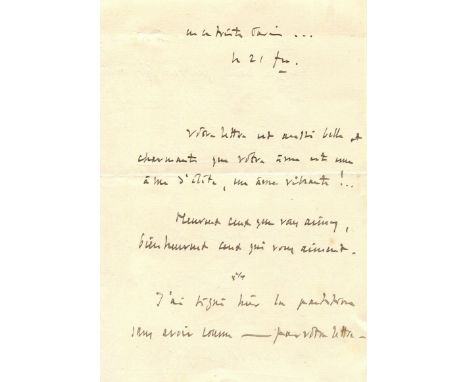 le 21
Votre lettre est aussi belle et
charmante que votre âme est une
âme d'élite, une âme vibrante !..
Heureux ceux que vous aimez,
bienheureux ceux qui vous aiment.
J'ai signé hier la
sans avoir connu — pas votre lettre —